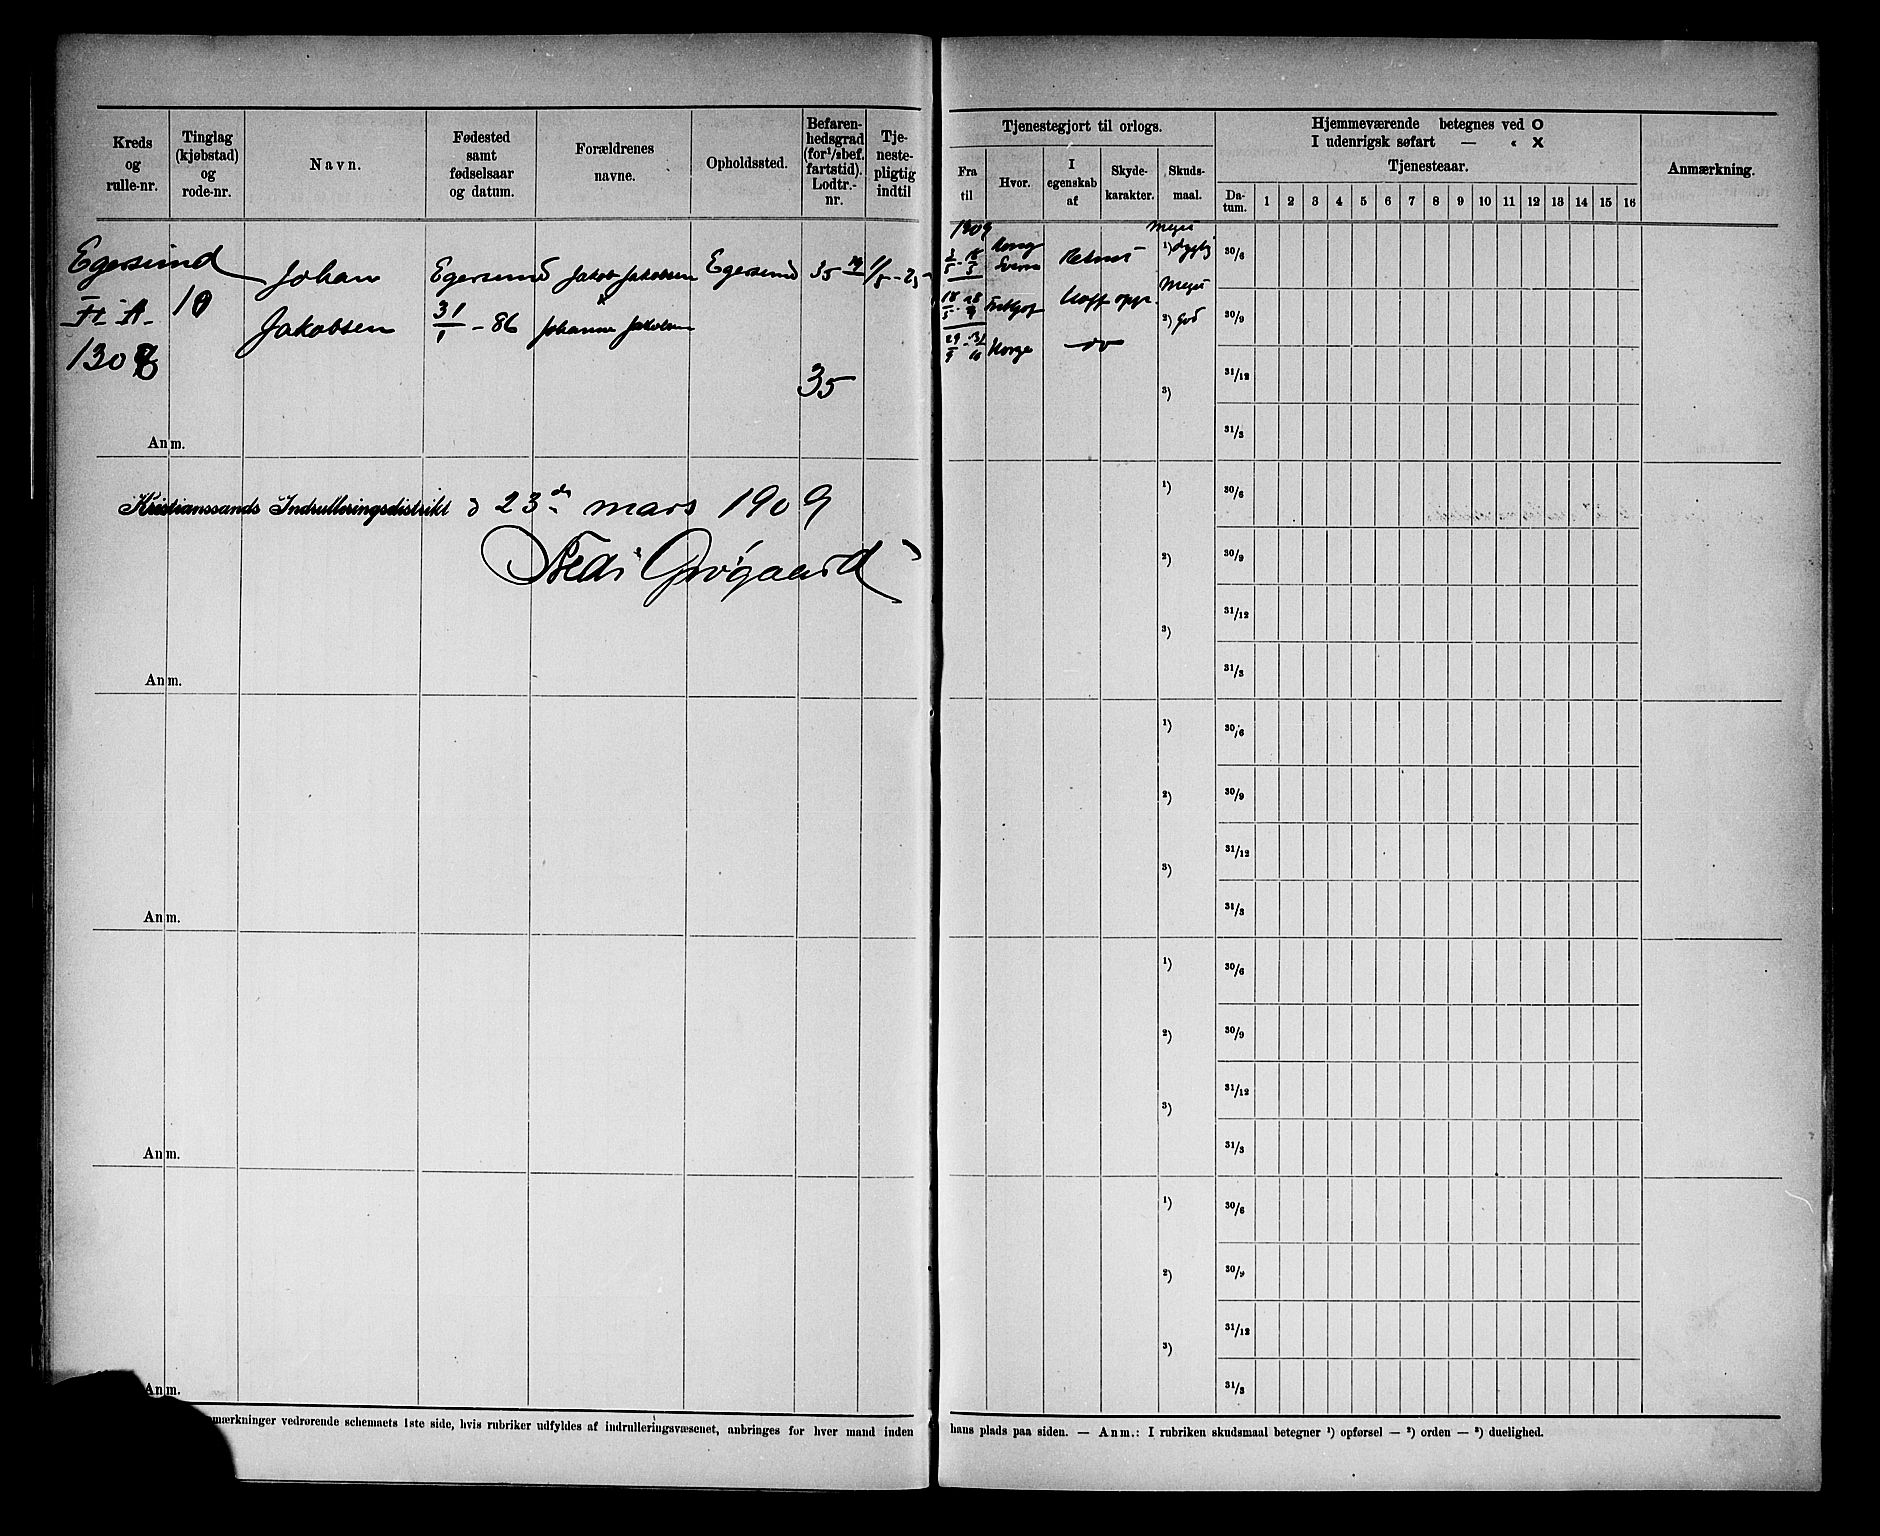 Kreds
og
rulle-nr.
Tinglag
(kjøbstad)
og
rode-nr.
Navn.
Fødested
samt
fødselsaar
og datum.
Forældrenes
navne.
Opholdssted.
Befaren-
hedsgrad
(for 1/2bef.
fartstid).
Lodtr.-
nr.
Tje-
neste-
pligtig
indtil
Tjenestegjort til orlogs.
Fra
til
Hvor.
I
egenskab
af
Skyde-
karakter.
Skuds-
maal.
Hjemmeværende betegnes ved O
I udenrigsk søfart — « X
Tjenesteaar.
Da-
tum.
1 2 3 4 5 6 7 8 9 10 11 12 13 14 15 16
Anmærkning.
Egersund
10
Johan
Jakobsen
Egersund
31/1 - 86
Jakob Jakobsen
Johanne Jakobsen
Egersund
35
35
1909
Norge
Meget
1) dygtig
Meget
2) God
3)
30/6
30/9
31/12
31/3
Anm.
Kristianssands Indrulleringsdistrikt d 23de mars 1909
Fredr Grøgaard
1)
2)
3)
30/6
30/9
31/12
31/3
Anm.
1)
2)
3)
30/6
30/9
31/12
31/3
Anm.
1)
2)
3)
30/6
30/9
31/12
31/3
Anm.
1)
2)
3)
30/6
30/9
31/12
31/3
Anm.
mærkninger vedrørende schemaets 1ste side, hvis rubriker udfyldes af indrulleringsvæsenet, anbringes for hver mand inden
hans plads paa siden. — Anm.: I rubriken skudsmaal betegner 1) opførsel — 2) orden — 3) duelighed.